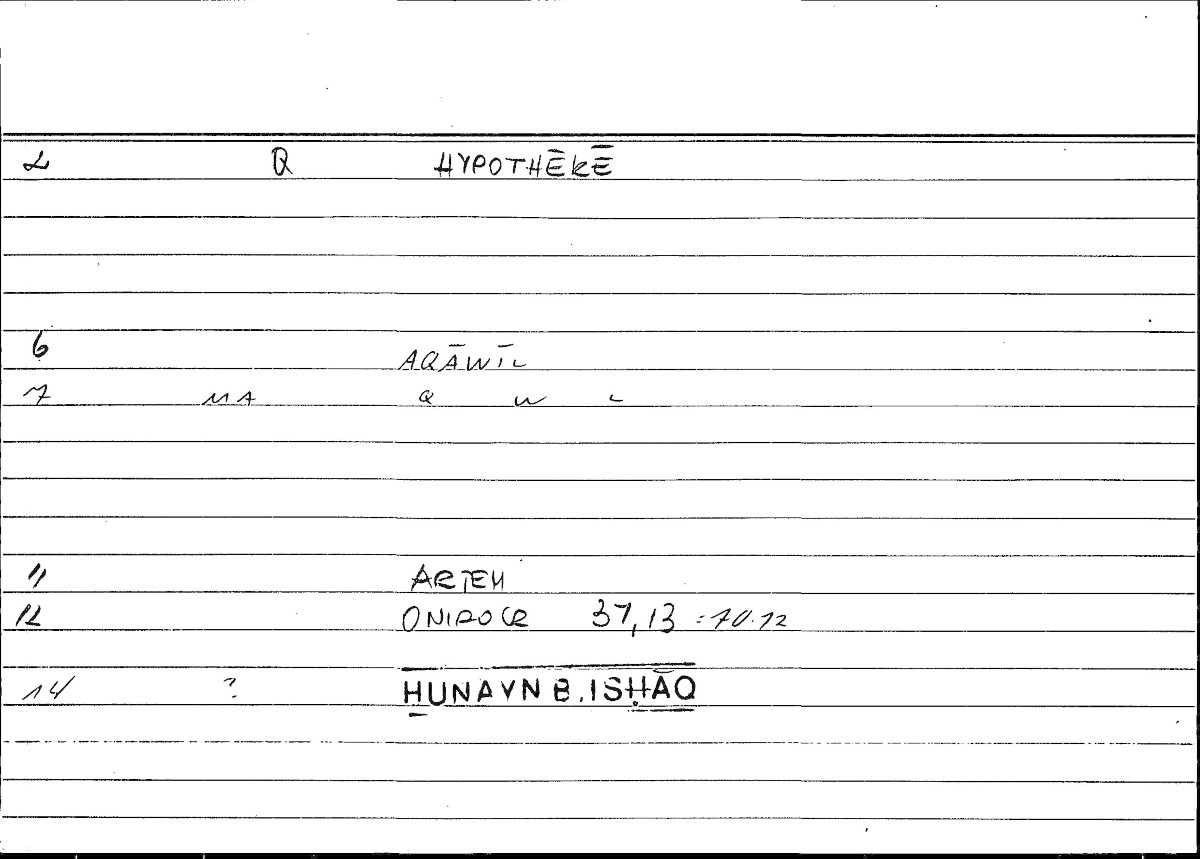 2 Q HYPOTHĒKĒ
6 AQĀWĪL
7 MA Q W L
11 ARTEM
12 ONIROCR 37,13 = 70.12
14 ? HUNAYN B. ISḤĀQ